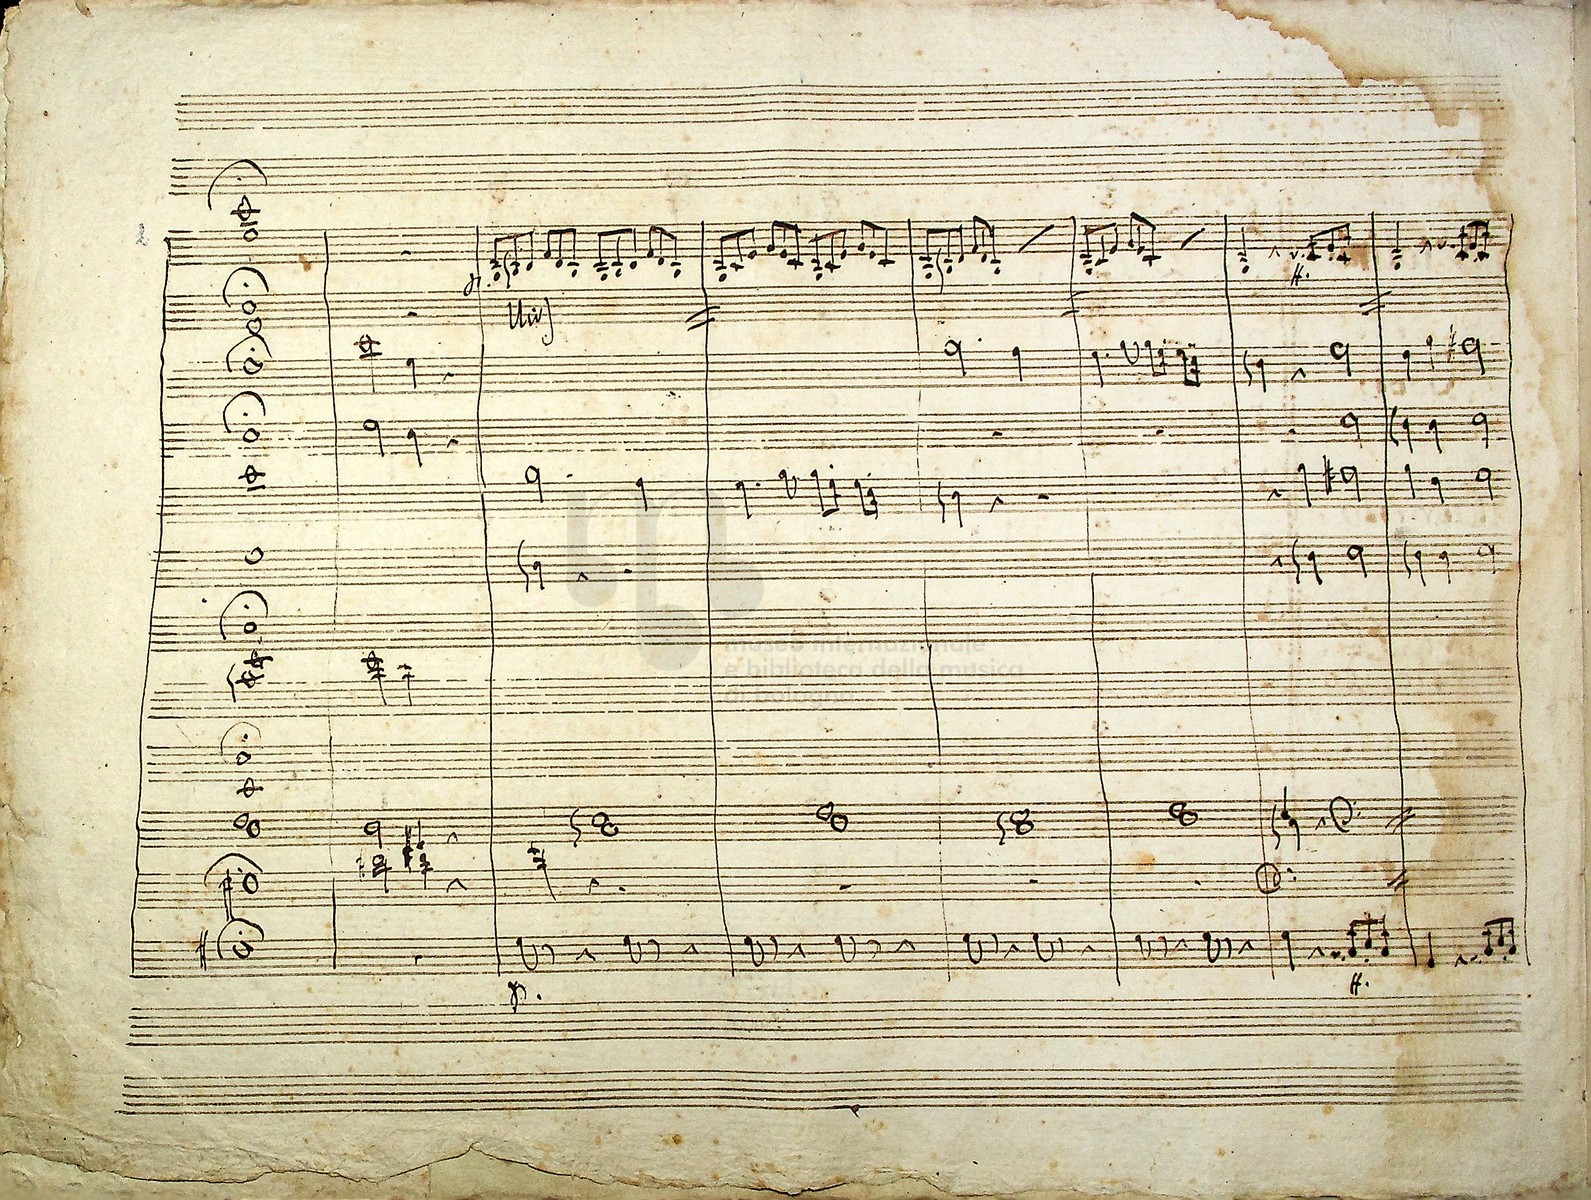 2
p.
Unis
ff.
museo internazionale
e biblioteca della musica
di bologna
p.
ff.